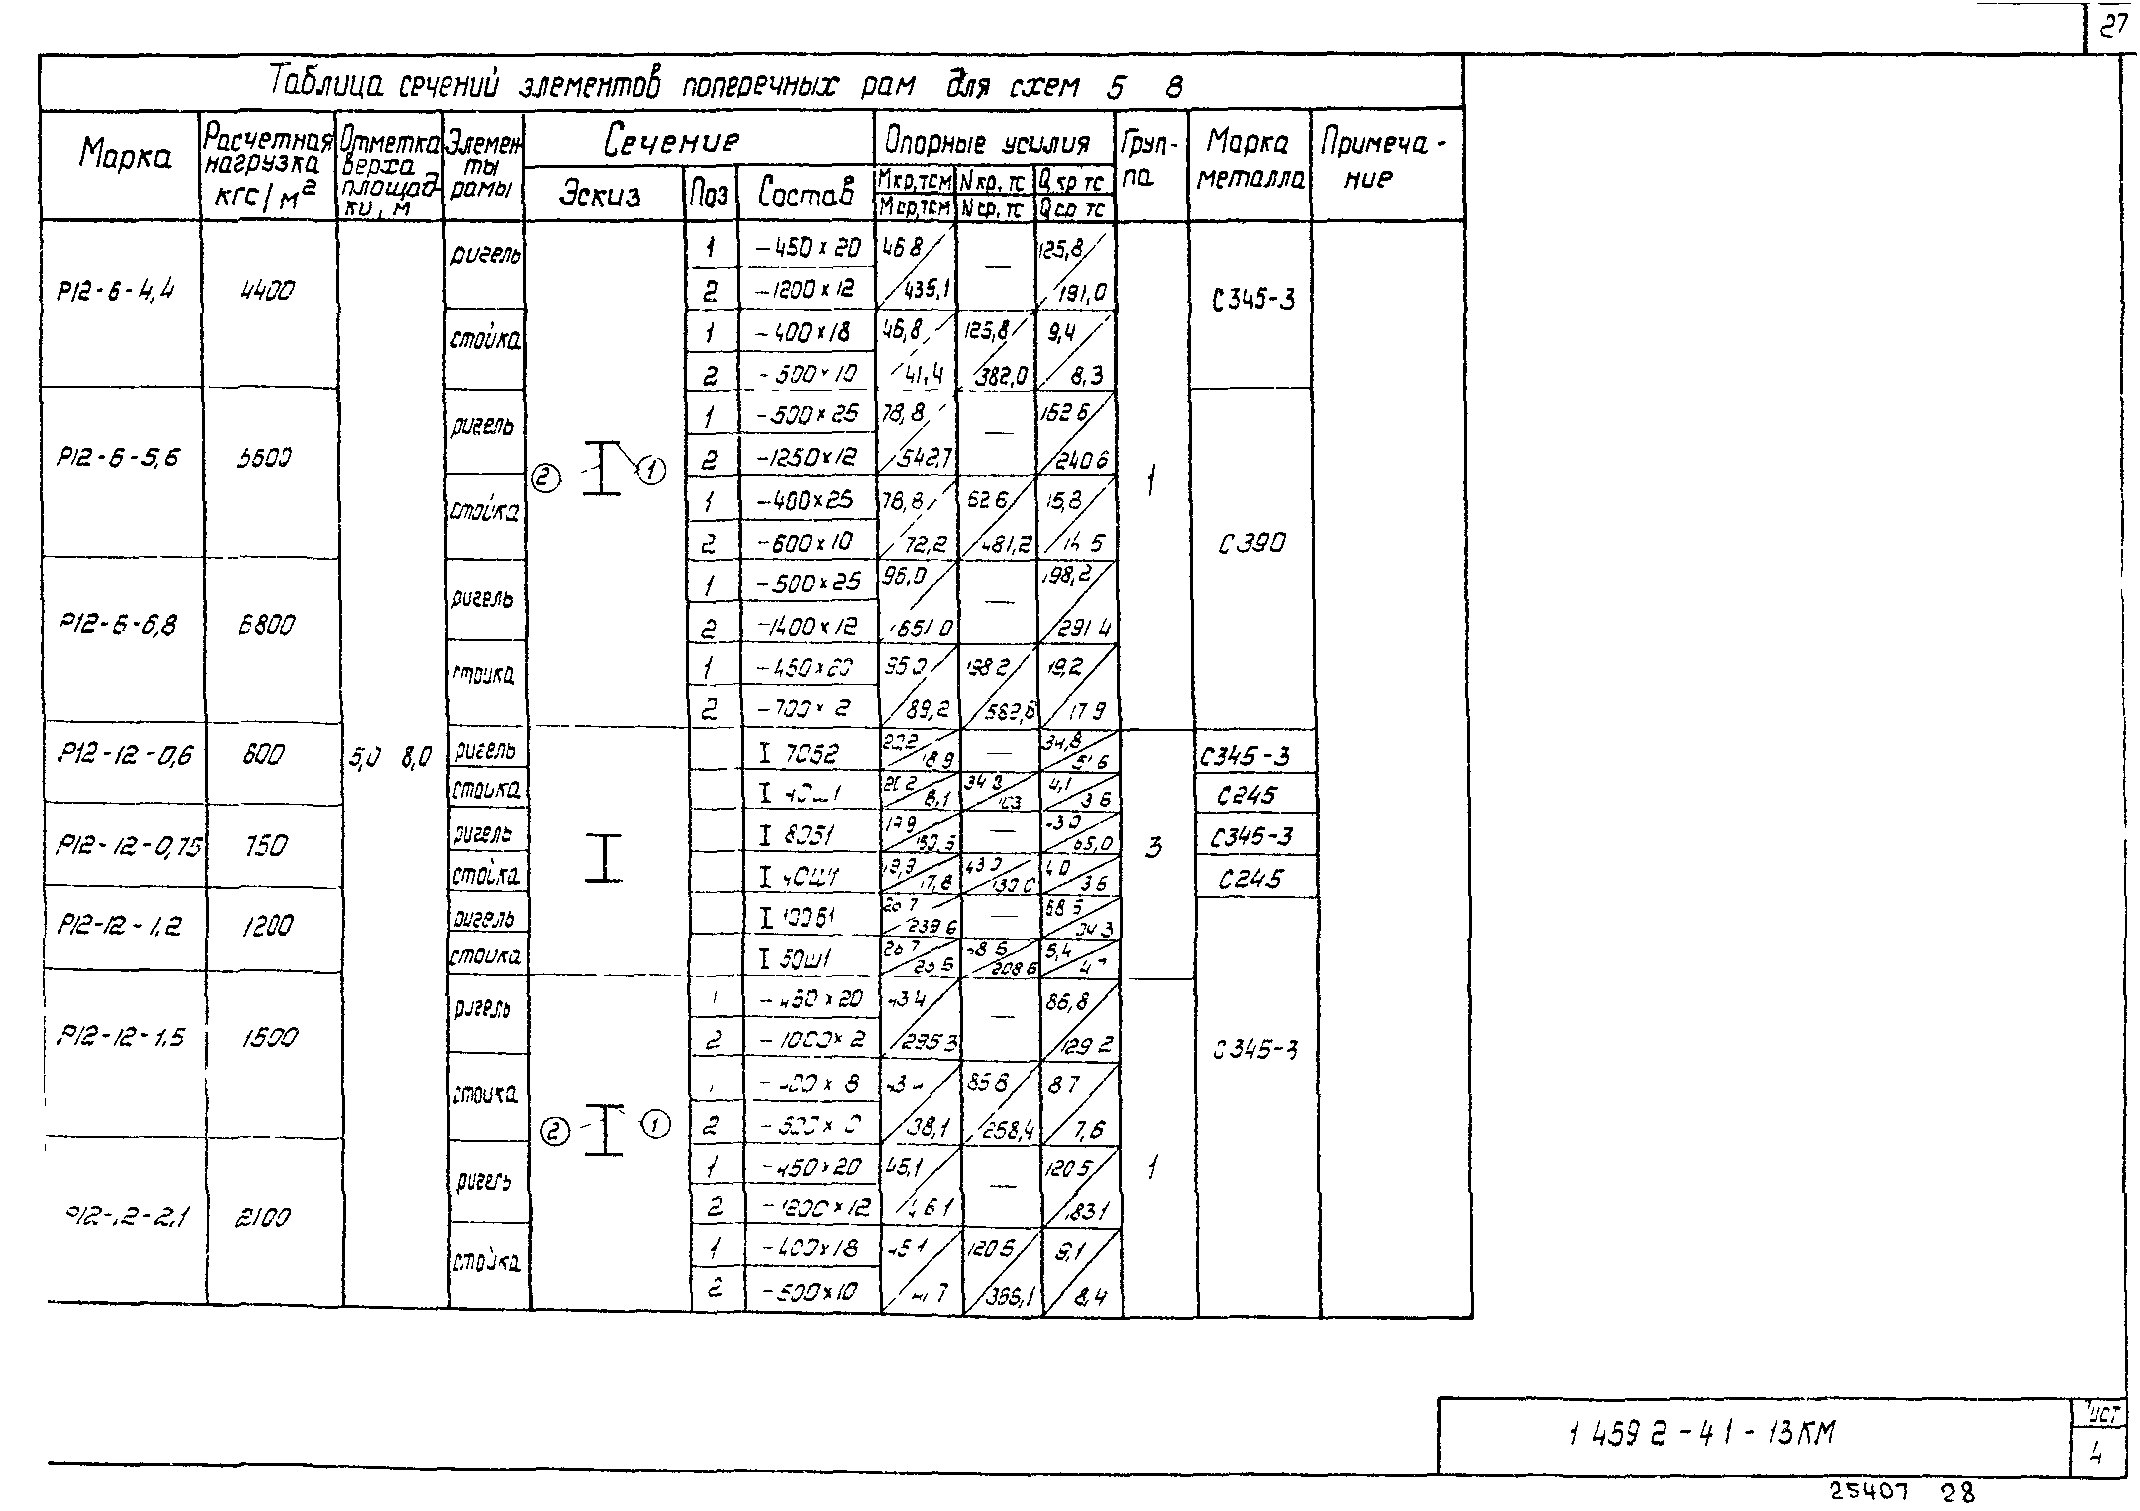 27
Таблица сечений элементов поперечных рам для схем 5 8
Марка | Расчетная нагрузка кгс/м² | Отметка верха площадки, м | Элементы рамы | Сечение | Опорные усилия | Группа | Марка металла | Примечание
Эскиз | Поз | Состав | Мкр,тсм | Nкр, тс | Qкр тс
Мср,тсм | Nср, тс | Qср тс
Р12-6-4,4 | 4400 | ригель | 1 | -450х20 | 46 8 | — | 125,8 | С345-3
2 | -1200х12 | 435,1 | 191,0
стойка | 1 | -400х18 | 46,8 | 125,8 | 9,4
2 | -500х10 | 41,4 | 382,0 | 8,3
Р12-6-5,6 | 5600 | ригель | 1 | -500х25 | 78,8 | — | 162 6 | 1 | С390
2 | -1250х12 | 542,7 | 240 6
② ①
стойка | 1 | -400х25 | 78,8 | 62 6 | 15,8
2 | -600х10 | 72,2 | 481,2 | 14 5
Р12-6-6,8 | 6800 | ригель | 1 | -500х25 | 96,0 | — | 198,2
2 | -1400х12 | 651 0 | 291 4
стойка | 1 | -450х20 | 95 0 | 198 2 | 19,2
2 | -700х 2 | 89,2 | 562,6 | 17 9
Р12-12-0,6 | 600 | 5,0 8,0 | ригель | I 70Б2 | 20 2 | — | 34,8 | 51 6 | 3 | С345-3
стойка | I 40ш1 | 20 2 | 8,1 | 34 8 | 103 | 4,1 | 3 6 | С245
Р12-12-0,75 | 750 | ригель | I 80Б1 | — | 65,0 | С345-3
стойка | I 40ш1 | 19,9 | 17,8 | 43 0 | 130 0 | 4 0 | 3 6 | С245
Р12-12-1,2 | 1200 | ригель | I 100Б1 | 26 7 | 239 6 | — | 68 5 | С345-3
стойка | I 50ш1 | 26 7 | 208 6 | 5,4
Р12-12-1,5 | 1500 | ригель | -450х20 | 43 4 | — | 86,8 | 1
2 | -1000х 2 | 295 3 | 129 2
стойка | -400х 8 | 85 8 | 8 7
② ①
2 | -500х 0 | 38,1 | 258,4 | 7,6
Р12-12-2,1 | 2100 | ригель | 1 | -450х20 | 45,1 | — | 120 5
2 | -1200х12 | 183 1
стойка | 1 | -400х18 | 45 1 | 120 5 | 9,1
2 | -500х10 | 366,1 | 8,4
1 459 2-4 1-13КМ
лист
4
25407 28